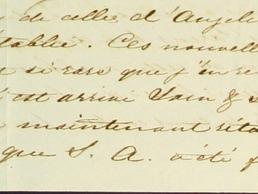 de celles d'Angele
tablie. Ces nouvelle
si rare que j'en re
est arrivé Sain &
maintenant réta
que S. A. a été f